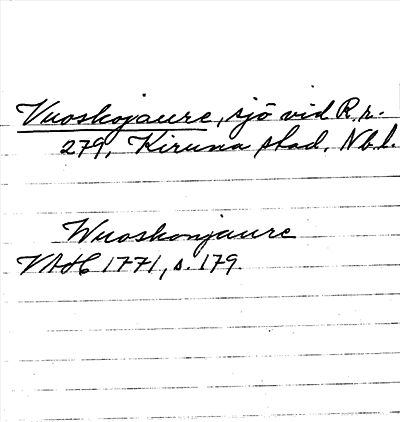 Vuoskojaure, sjö vid R.r.
279, Kiruna stad, Nb.l.
Wuoskonjaure
VAH 1771, s. 179.